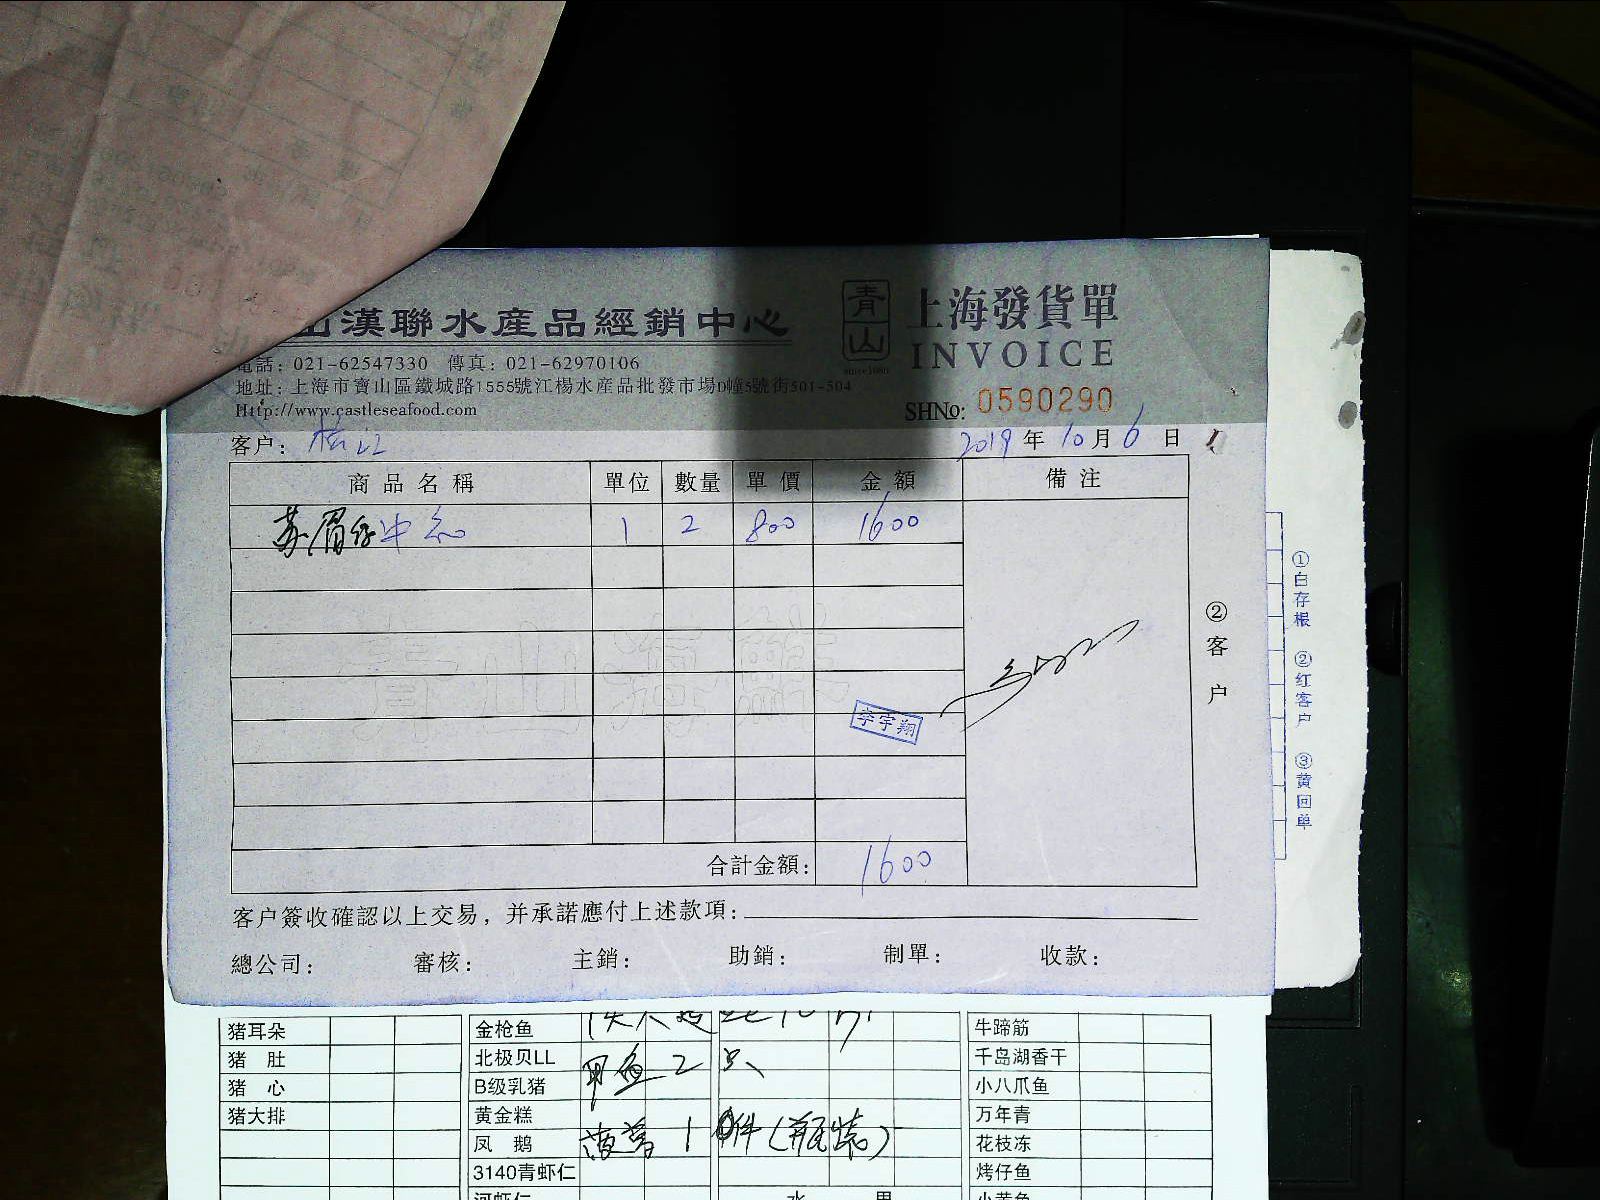 山漢聯水產品經銷中心
青山
since1980
上海發貨單
INVOICE
電話：021-62547330 傳真：021-62970106
地址：上海市寶山區鐵城路1555號江楊水產品批發市場D幢5號街501-504
Http://www.castleseafood.com
SHNo: 0590290
客户：
2019 年 10 月 6 日
商品名稱 單位 數量 單價 金額 備注
苏眉仔中 1 2 800 1600
青山海鮮
李宇翔
合計金額： 1600
② 客户
①白存根 ②红客户 ③黄回单
客户簽收確認以上交易，并承諾應付上述款項：
總公司： 審核： 主銷： 助銷： 制單： 收款：
猪耳朵 金枪鱼 牛蹄筋
猪肚 北极贝LL 甲鱼 2 只 千岛湖香干
猪心 B级乳猪 小八爪鱼
猪大排 黄金糕 万年青
凤鹅 菠萝 1 件（瓶装） 花枝冻
3140青虾仁 烤仔鱼
河虾仁 水果 小黄鱼